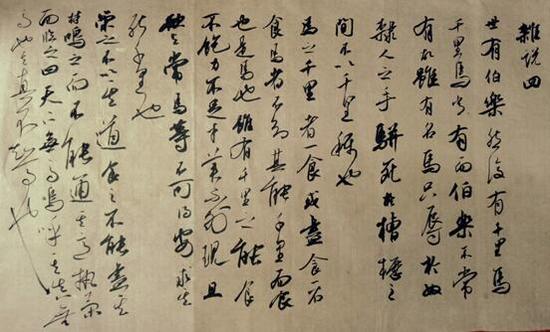 雜說四
世有伯樂然後有千里馬
千里馬常有而伯樂不常
有故雖有名馬只辱於奴
隸人之手駢死於槽櫪之
間不以千里稱也
馬之千里者一食或盡食一石
食馬者不知其能千里而食
也是馬也雖有千里之能食
不飽力不足才美不外現且
欲與常馬等不可得安求其
能千里也
策之不以其道食之不能盡其
材鳴之而不能通其意執策
而臨之曰天下無馬嗚呼其真無
馬也其真不知馬也